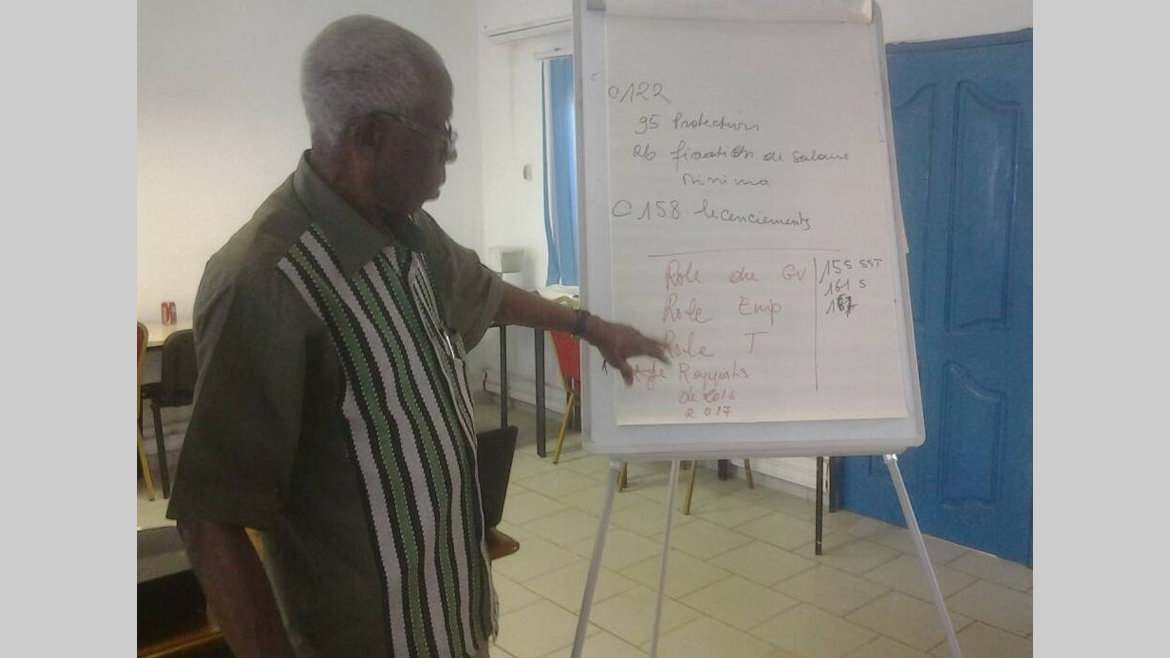 C122
95 Protections
26 fixation de salaire
minima
C158 licenciements
Role du GV
Role Emp
Role T
Rapports
de 2016
2017
155 SST
161 S
187